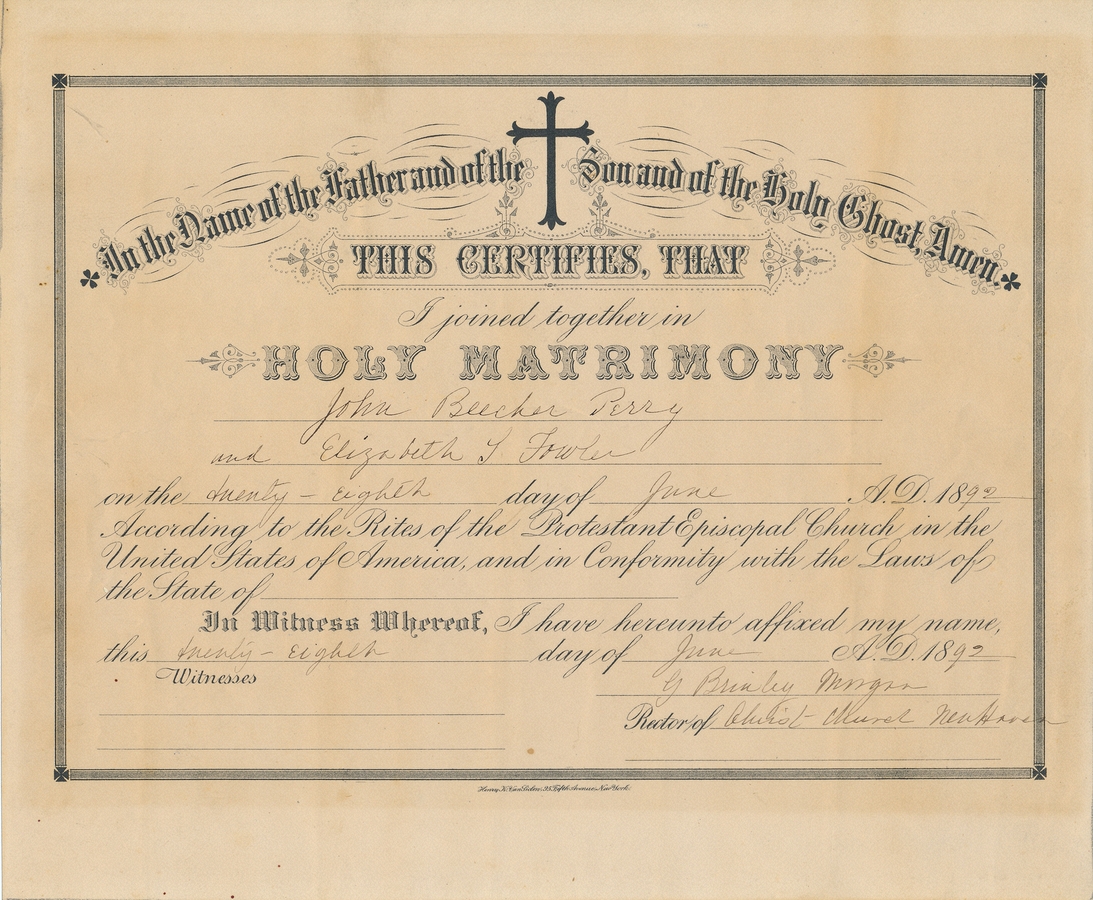 In the Name of the Father and of the Son and of the Holy Ghost, Amen.
THIS CERTIFIES, THAT
I joined together in
HOLY MATRIMONY
John Beecher Perry
and Elizabeth S Fowler
on the twenty-eighth day of June A.D. 1892
According to the Rites of the Protestant Episcopal Church in the
United States of America, and in Conformity with the Laws of
the State of
In Witness Whereof, I have hereunto affixed my name,
this twenty-eighth day of June A.D. 1892
Witnesses
G Brinley Morgan
Rector of Christ Church New Haven
Henry K. Van Siclen, 95 Fifth Avenue, New York.